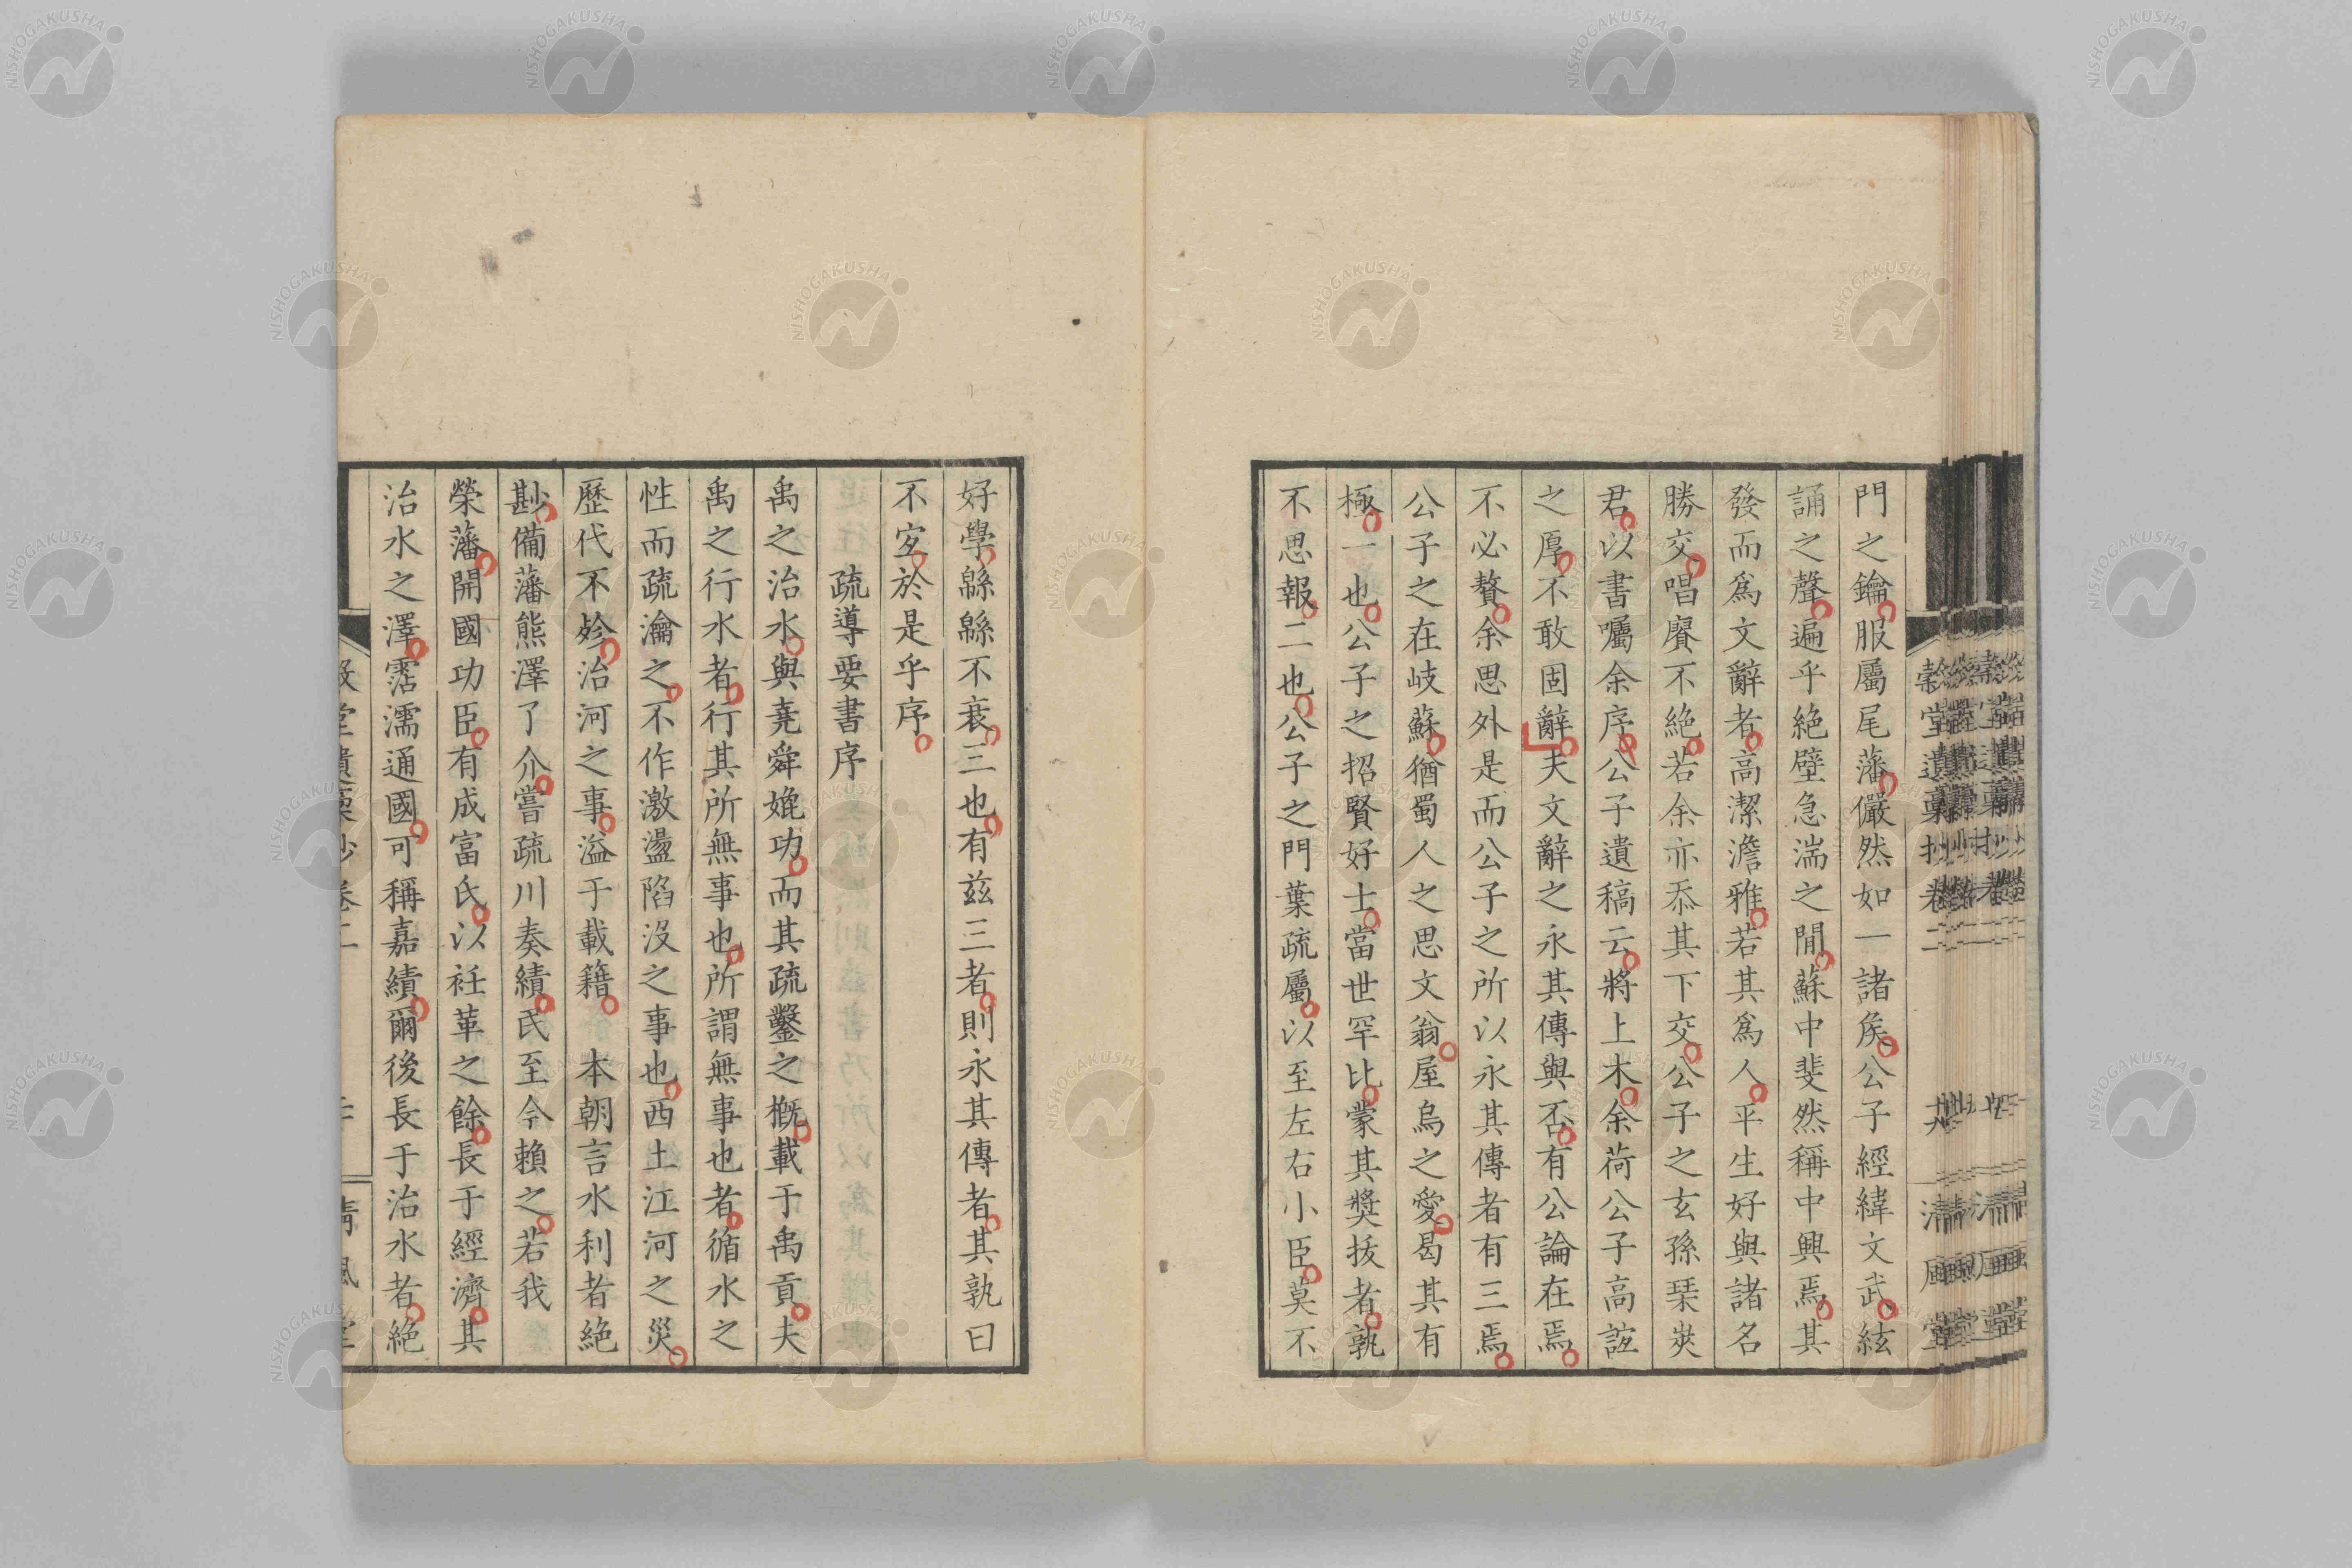 門之鑰服屬尾藩儼然如一諸矦公子經緯文武絃
誦之聲遍乎絶壁急湍之間蘇中斐然稱中興焉其
發而爲文辭者高潔澹雅若其爲人平生好與諸名
勝交唱賡不絶若余亦忝其下交公子之玄孫栞㷇
君以書囑余序公子遺稿云將上木余荷公子高誼
之厚不敢固辭夫文辭之永其傳與否有公論在焉
不必贅余思外是而公子之所以永其傳者有三焉
公子之在岐蘇猶蜀人之思文翁屋烏之愛曷其有
極一也公子之招賢好士當世罕比蒙其奬拔者孰
不思報二也公子之門葉疏屬以至左右小臣莫不
好學緜緜不衰三也有兹三者則永其傳者其孰曰
不宐於是乎序
疏導要書序
禹之治水與堯舜媲功而其疏鑿之概載于禹貢夫
禹之行水者行其所無事也所謂無事也者循水之
性而疏瀹之不作激盪陷沒之事也西土江河之災
歷代不㱥治河之事溢于載籍 本朝言水利者絶
尠備藩熊澤了介嘗疏川奏績民至今賴之若我
榮藩開國功臣有成富氏以衽革之餘長于經濟其
治水之澤霑濡通國可稱嘉績爾後長于治水者絶